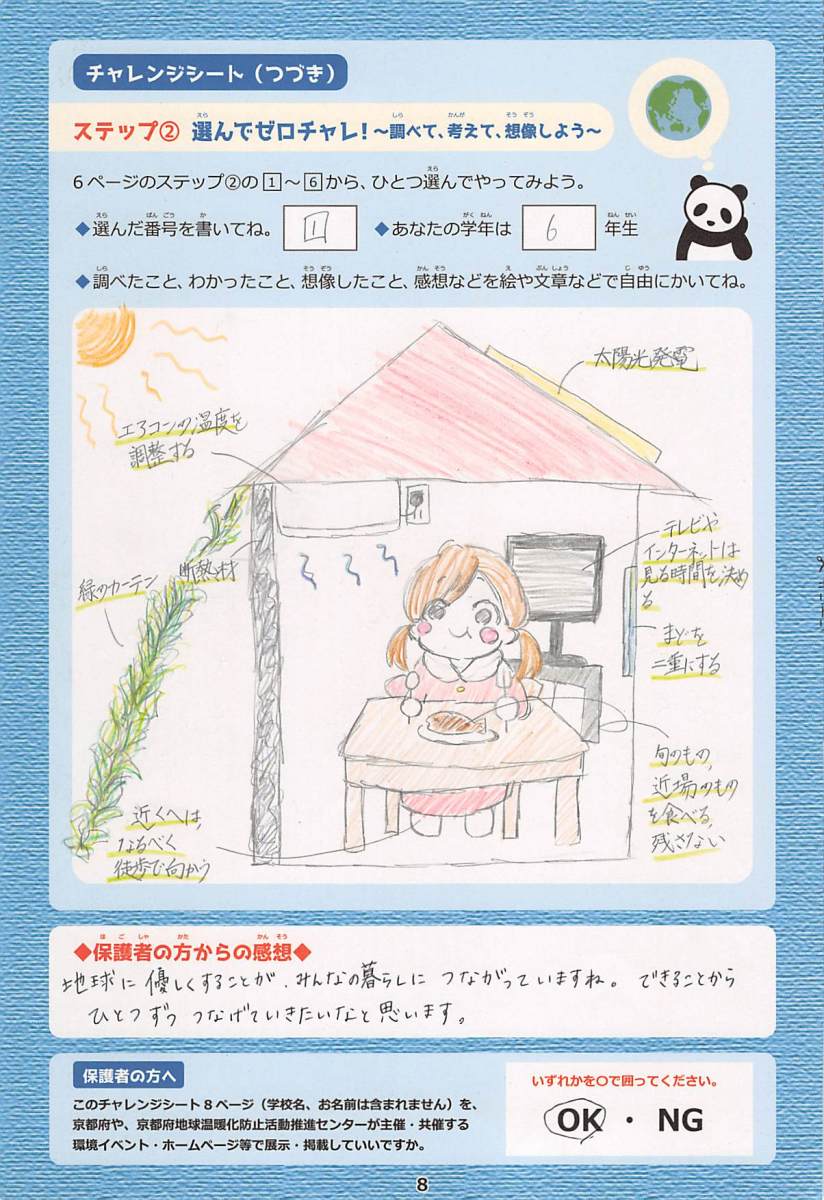 チャレンジシート（つづき）
ステップ② 選んでゼロチャレ！～調べて、考えて、想像しよう～
6ページのステップ②の1～6から、ひとつ選んでやってみよう。
◆選んだ番号を書いてね。 1 ◆あなたの学年は 6 年生
◆調べたこと、わかったこと、想像したこと、感想などを絵や文章などで自由にかいてね。
太陽光発電
エアコンの温度を
調整する
テレビや
インターネットは
見る時間を決め
る
断熱材
緑のカーテン
まどを
二重にする
旬のもの、
近場のもの
を食べる、
残さない
近くへは、
なるべく
徒歩で向かう
◆保護者の方からの感想◆
地球に優しくすることが、みんなの暮らしに つながっていますね。 できることから
ひとつずつ つなげていきたいなと思います。
保護者の方へ
このチャレンジシート8ページ（学校名、お名前は含まれません）を、
京都府や、京都府地球温暖化防止活動推進センターが主催・共催する
環境イベント・ホームページ等で展示・掲載していいですか。
いずれかを○で囲ってください。
OK ・ NG
8